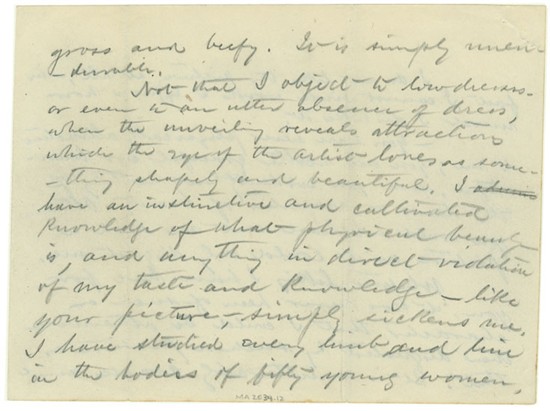 gross and beefy. It is simply unen-
-durable.
Not that I object to low dresses-
or even to an utter absence of dress,
when the unveiling reveals attractions
which the eye of the artist loves as some-
-thing shapely and beautiful. I
have an instinctive and cultivated
knowledge of what physical beauty
is, and anything in direct violation
of my taste and knowledge - like
your picture, - simply sickens me.
I have studied every limb and line
in the bodies of fifty young women,
MA 2634.12